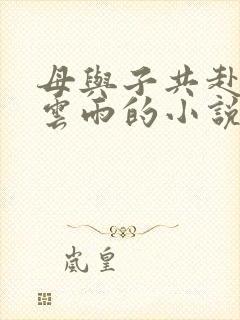 母與子共赴
雲雨的小說
嵐皇